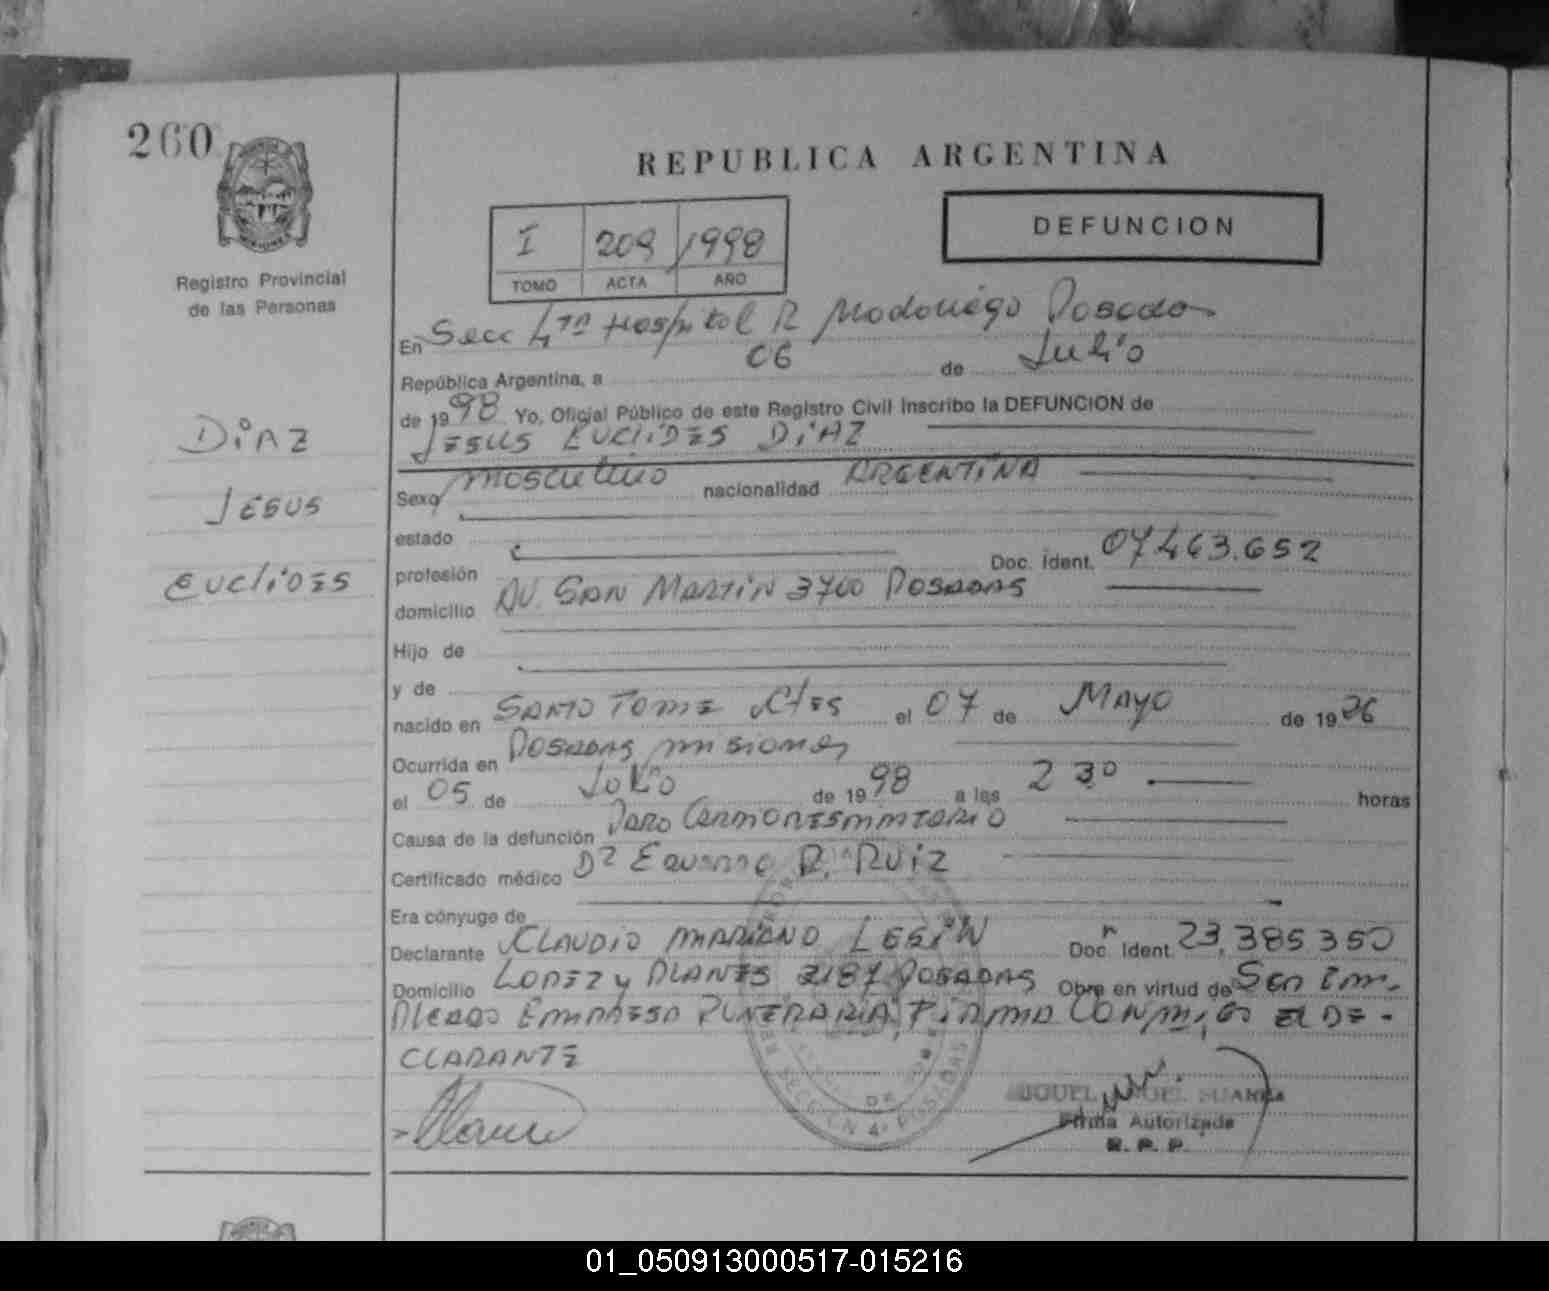 260
REPUBLICA ARGENTINA
DEFUNCION
I 209 1998
TOMO ACTA AÑO
Registro Provincial
de las Personas
DiAZ
JESUS
EUCLIDES
En Secc 4ta Hospital R Madariaga Posadas
República Argentina, a 06 de Julio
de 1998 Yo, Oficial Público de este Registro Civil Inscribo la DEFUNCION de
JESUS EUCLIDES DiAZ
Sexo masculino nacionalidad ARGENTINA
estado
profesión Doc. Ident. 07.463.652
domicilio AV. SAN MARTIN 3700 POSADAS
Hijo de
y de
nacido en SANTO TOME Ctes el 07 de MAYO de 19
Ocurrida en POSADAS misiones
el 05 de Julio de 1998 a las 2 30 horas
Causa de la defunción PARO
Certificado médico Dr EDUARDO R. RUIZ
Era cónyuge de
Declarante CLAUDIO MARIANO LESIW Doc Ident. 23,385350
Domicilio LOPEZ y PLANES 2187 POSADAS Obra en virtud de Ser Em-
PLEADO EMPRESA FUNERARIA, FIRMA CONMIGO EL DE-
CLARANTE
SECCION 4ª POSADAS
MIGUEL ANGEL SUAREZ
Firma Autorizada
R. P. P.
01_050913000517-015216